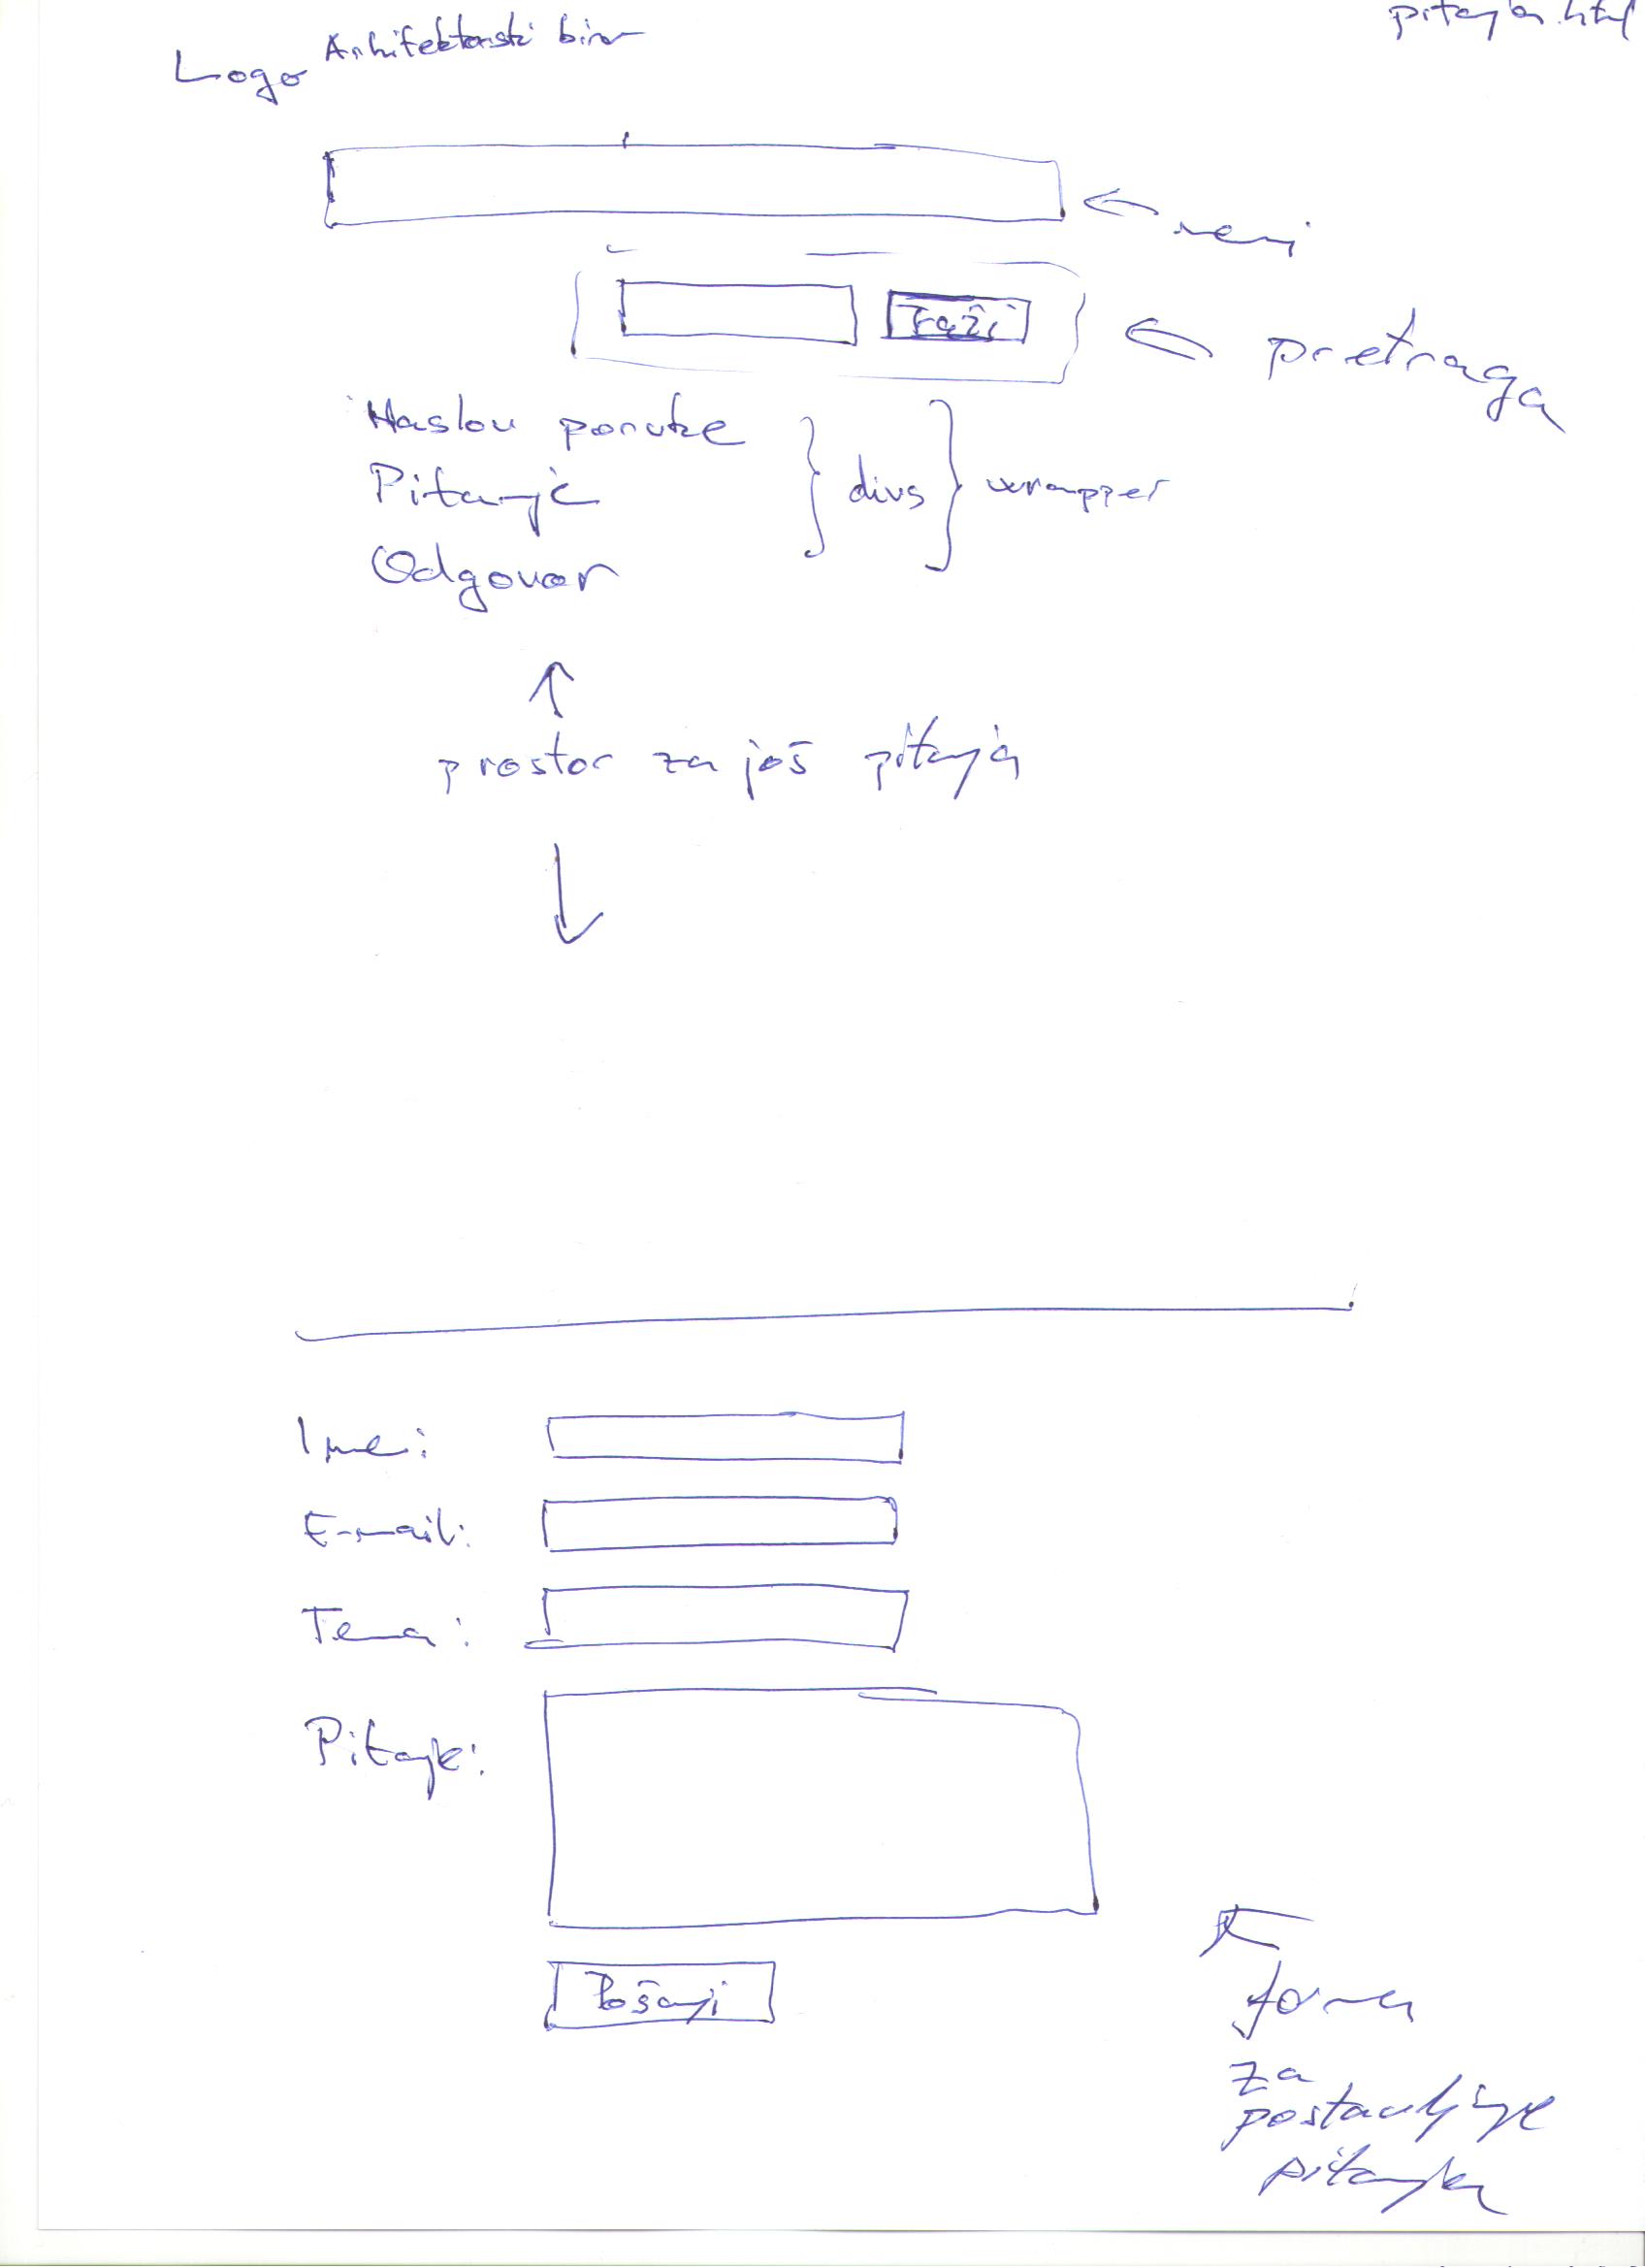 pitanja.html
Logo Arhitektonski biro
← meni
Traži
← pretraga
Naslov poruke
Pitanje
Odgovor
} divs } wrapper
↑
prostor za još pitanja
↓
Ime:
E-mail:
Tema:
Pitanje:
Pošalji
forma
za
postavljanje
pitanja